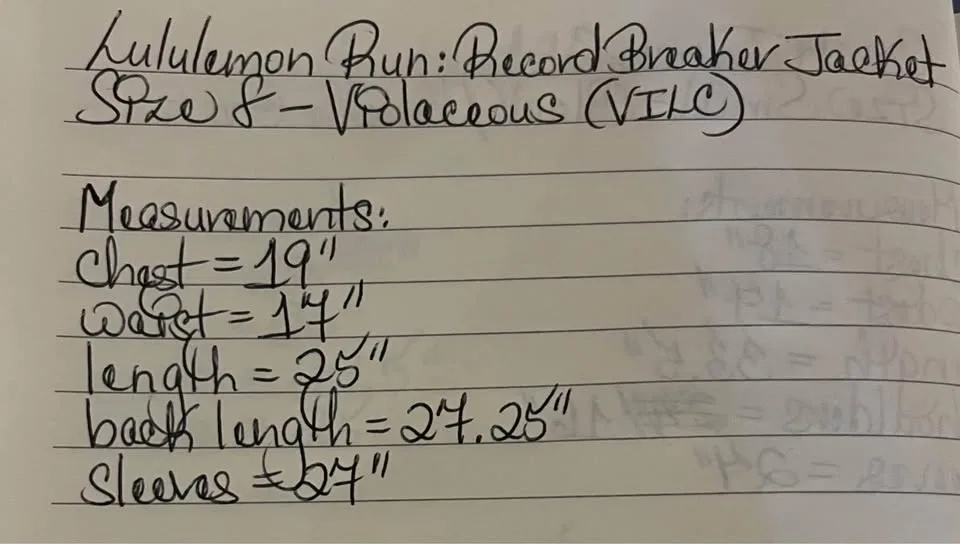 Lululemon Run: Record Breaker Jacket
Size 8 - Violaceous (VILC)
Measurements:
Chest = 19"
waist = 17"
length = 25"
back length = 27.25"
Sleeves = 27"